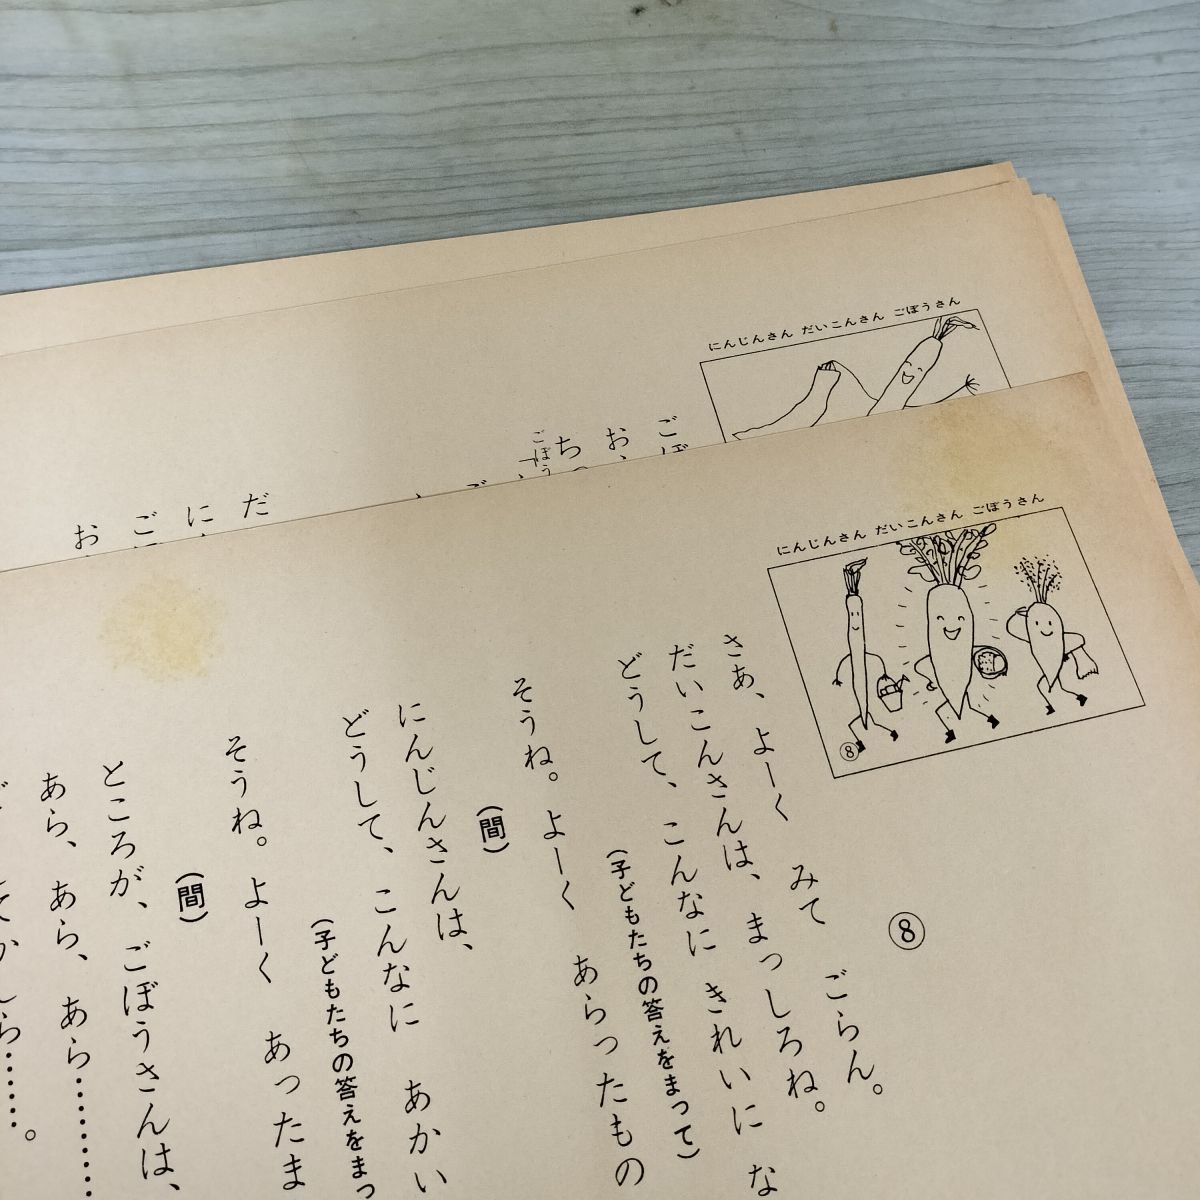 にんじんさん だいこんさん ごぼうさん
ごぼ
お、
ち
ごぼう
だ
に
ご
お
にんじんさん だいこんさん ごぼうさん
⑧
⑧
さあ、よーく みて ごらん。
だいこんさんは、まっしろね。
どうして、こんなに きれいに な
(子どもたちの答えをまって)
そうね。よーく あらったもの
(間)
にんじんさんは、
どうして、こんなに あかい
(子どもたちの答えをまっ
そうね。よーく あったま
(間)
ところが、ごぼうさんは、
あら、あら、あら………
かしら……。